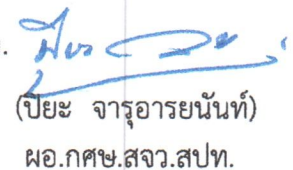 (ปิยะ จารุอารยนันท์)
ผอ.กศษ.สจว.สปท.